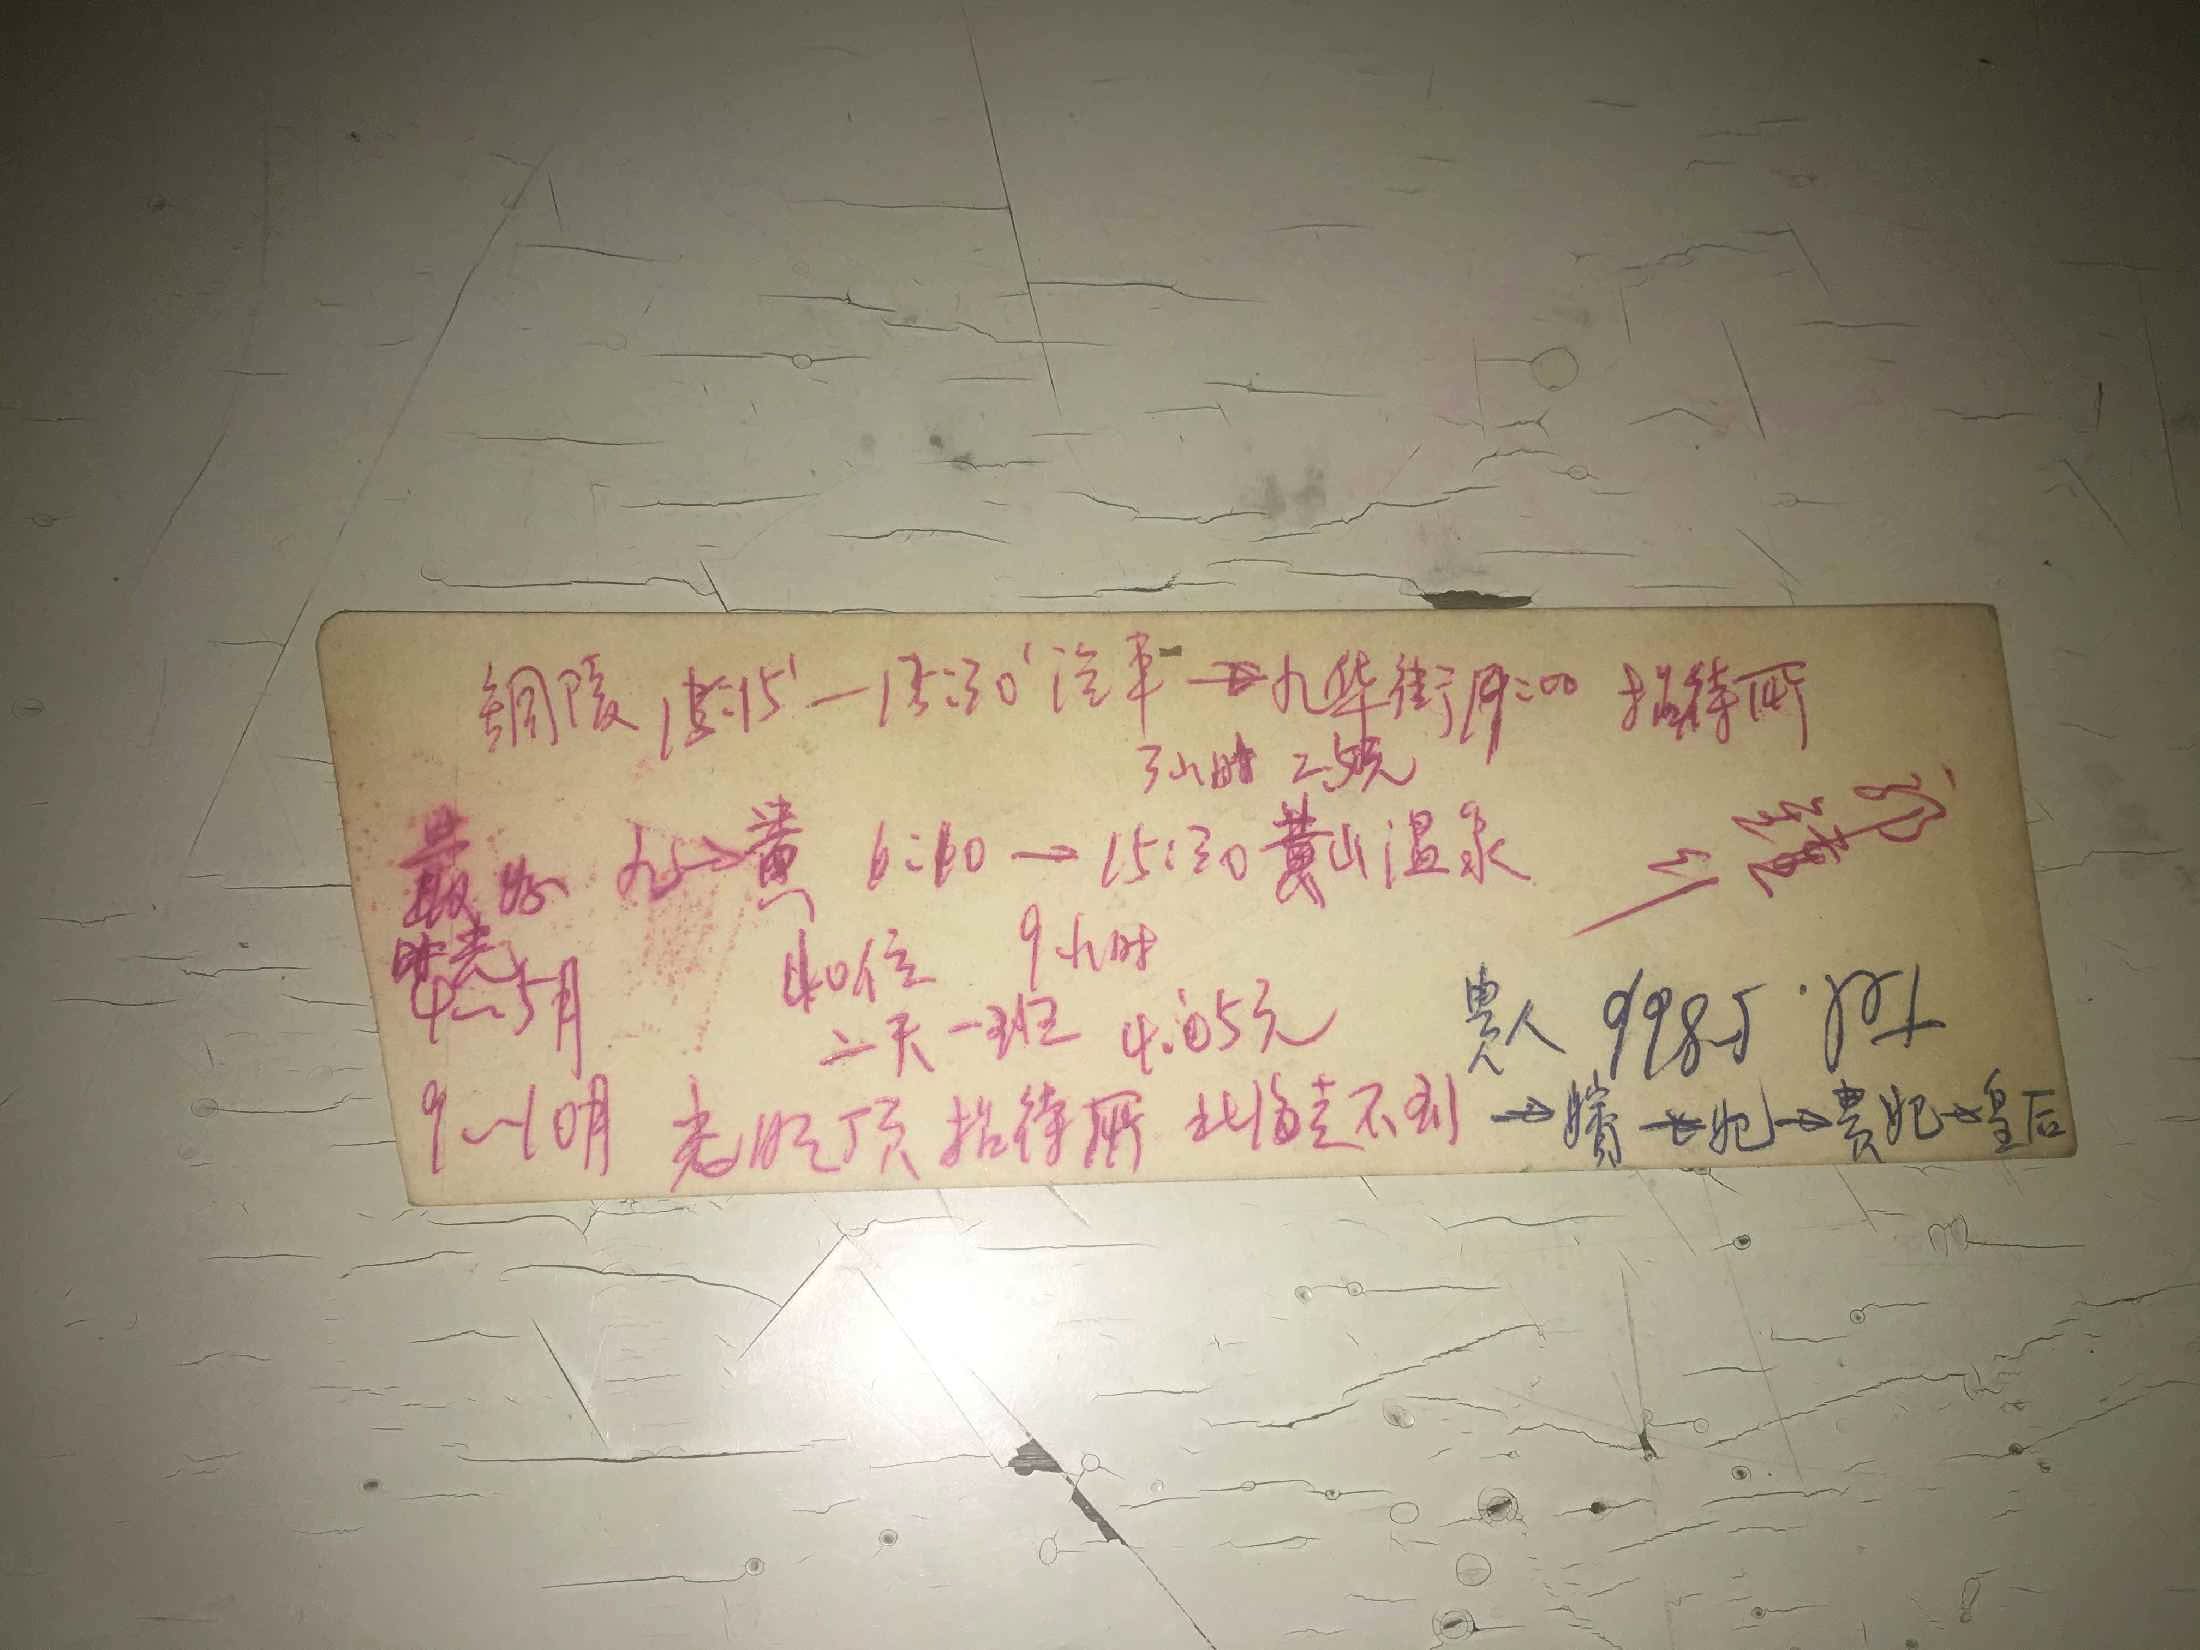 铜陵 12:15'—15:30' 汽车→九华街 19:00 招待所
3小时 2.5元
最好 九→黄 6:10→15:30 黄山温泉
时光
4~5月 40位 9小时
二天一班 4.05元
贵人 9985
9~10月 光明顶招待所 北海走不到 →嫔→妃→贵妃→皇后